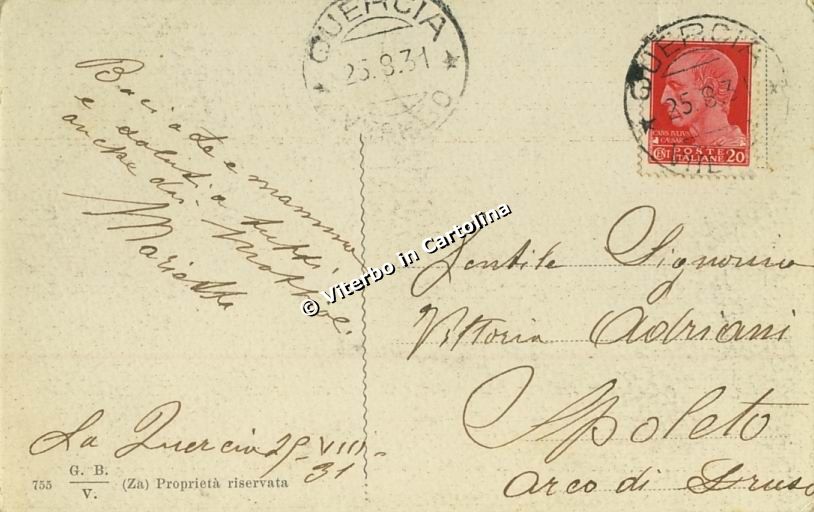 QUERCIA
25.8.31
VITERBO
QUERCIA
25.8.31
CAIVS IVLIVS
CAESAR
CENT POSTE ITALIANE 20
Baci a te e mamma
e saluti a tutti
anche da
Marietta
© Viterbo in Cartolina
Gentile Signorina
Vittoria Adriani
Spoleto
Arco di Druso
La Quercia 25-VIII-
31
755 G. B. V. (Za) Proprietà riservata